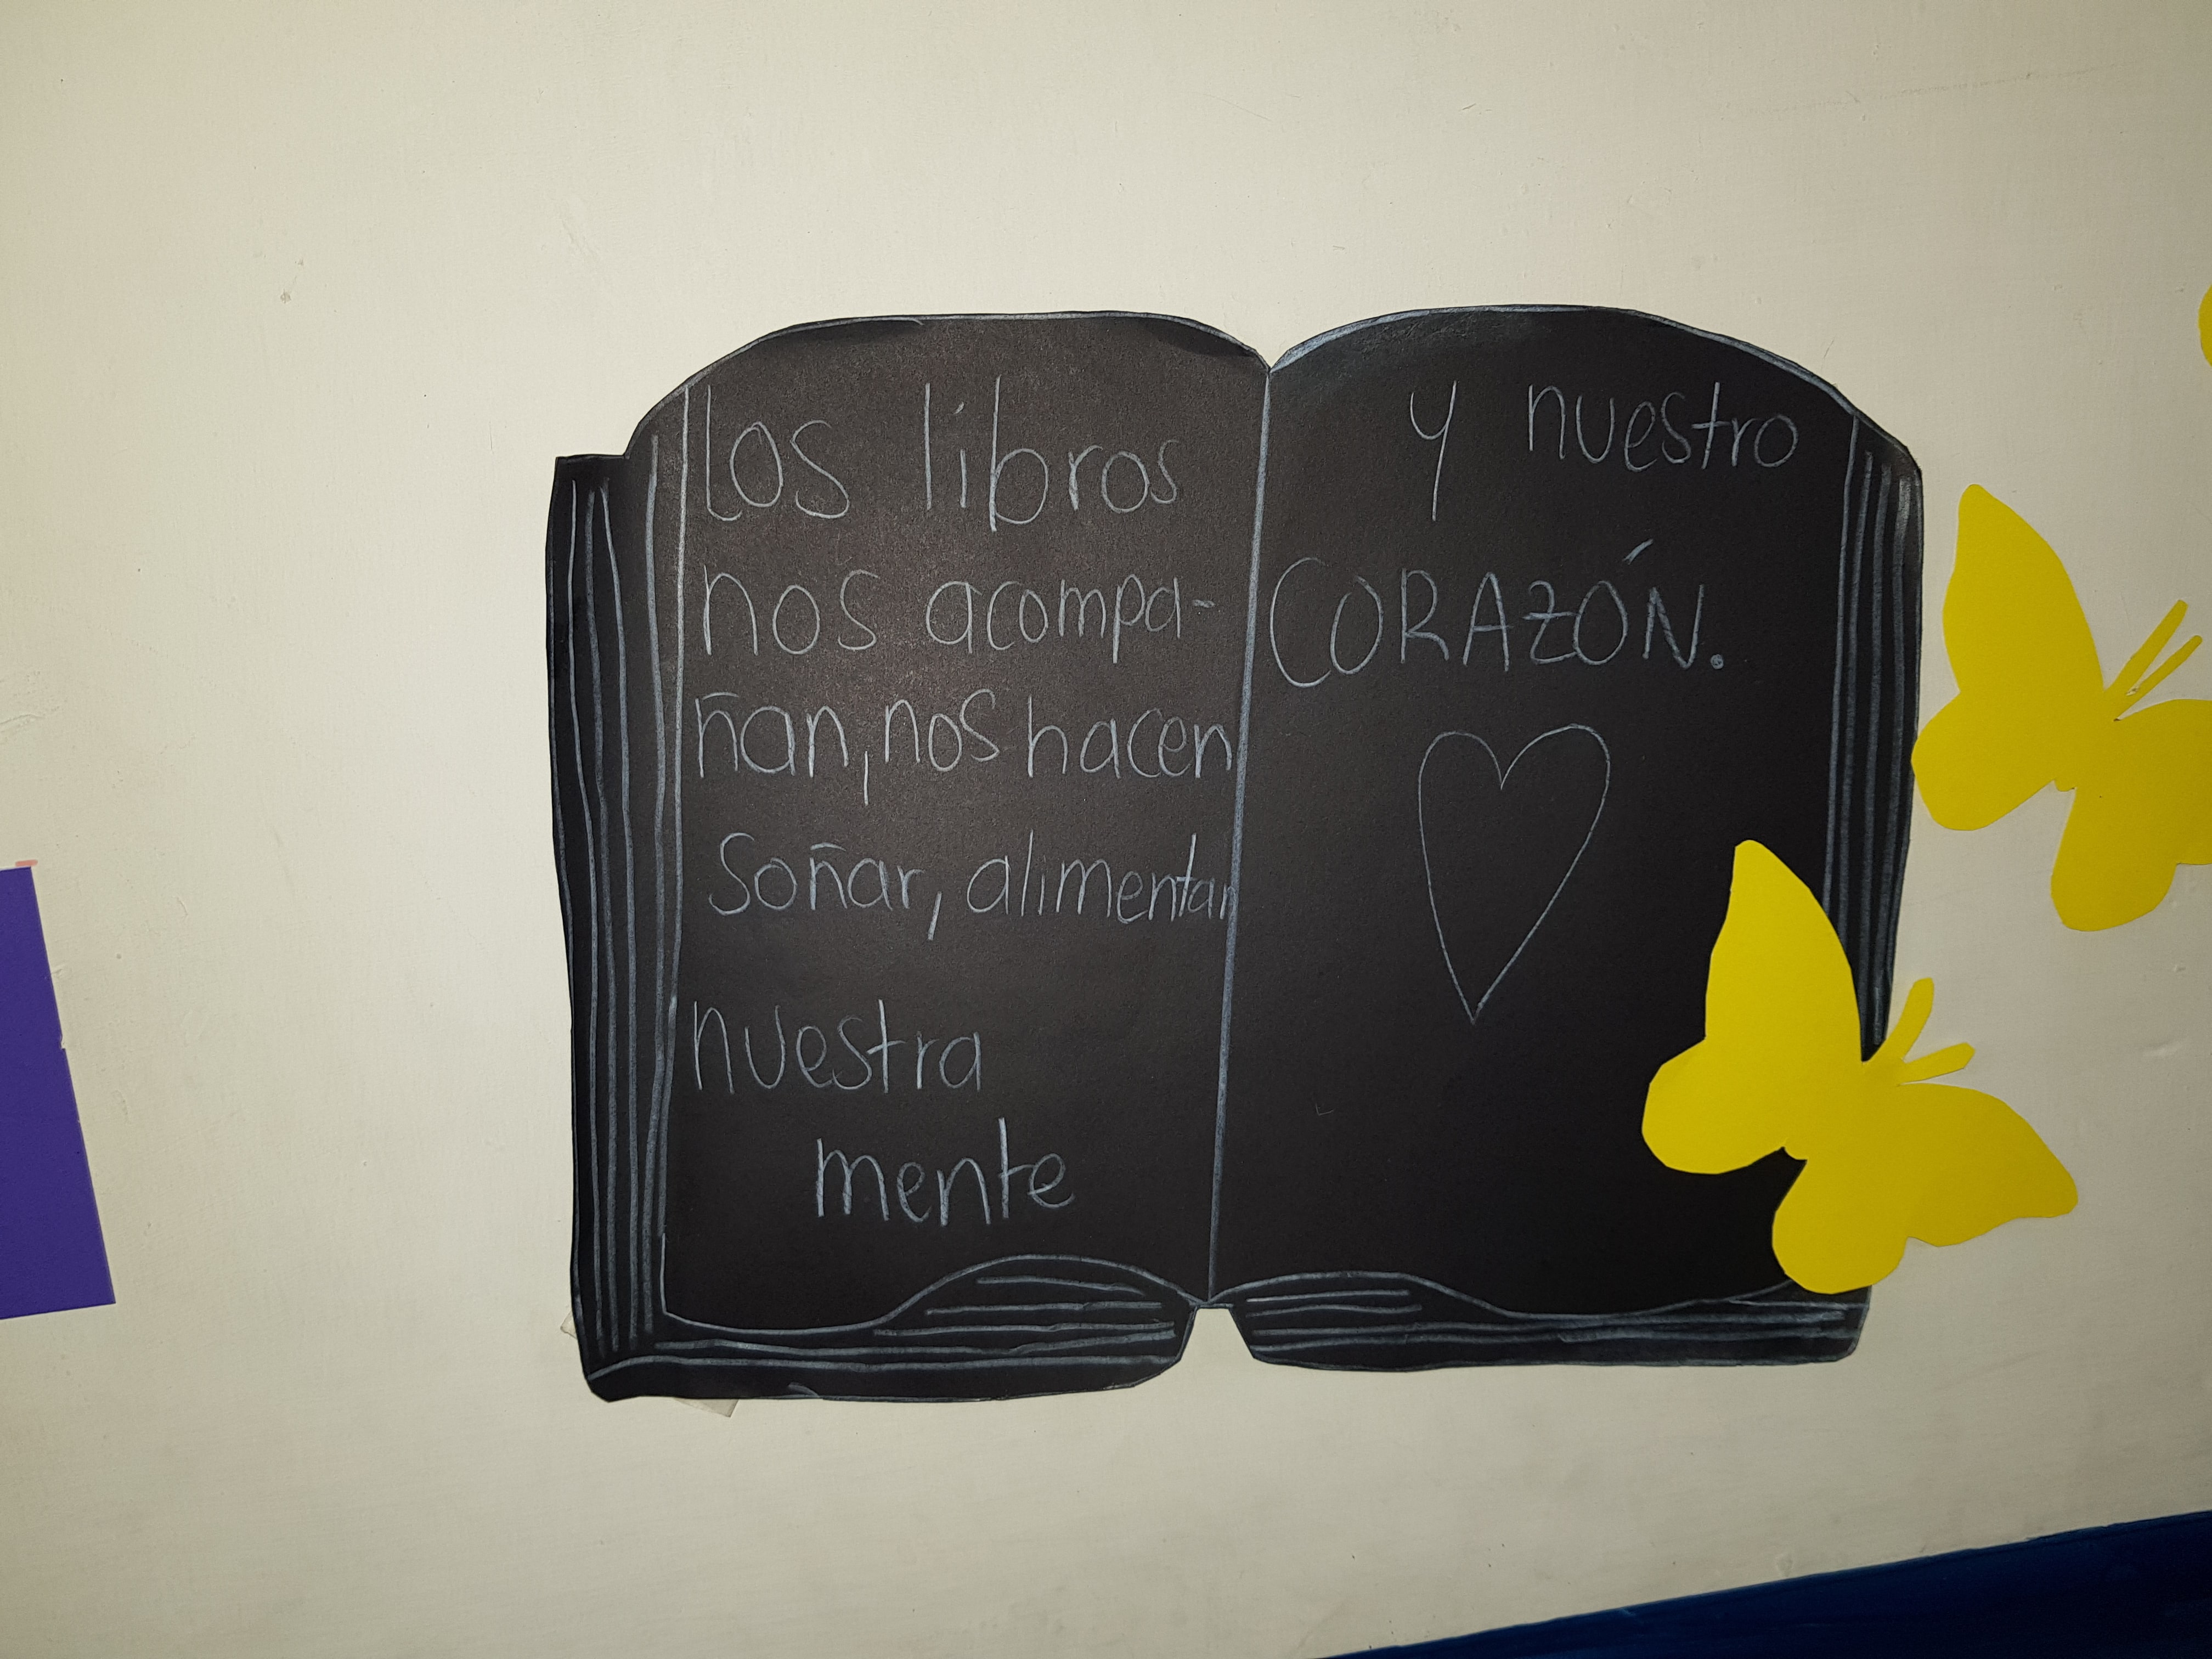 los libros
nos acompa-
ñan, nos hacen
soñar, alimentan
nuestra
mente
y nuestro
CORAZÓN.